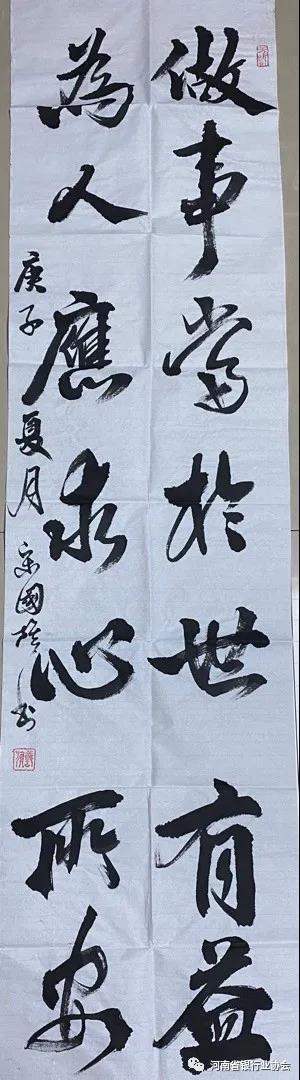 做事當於世有益
為人應求心所安
庚子夏月宋國雄書
河南省银行业协会